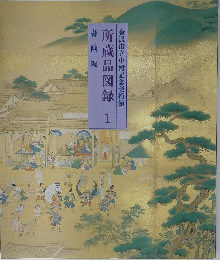 金沢市立中村記念美術館
所蔵品図録
1
書画編